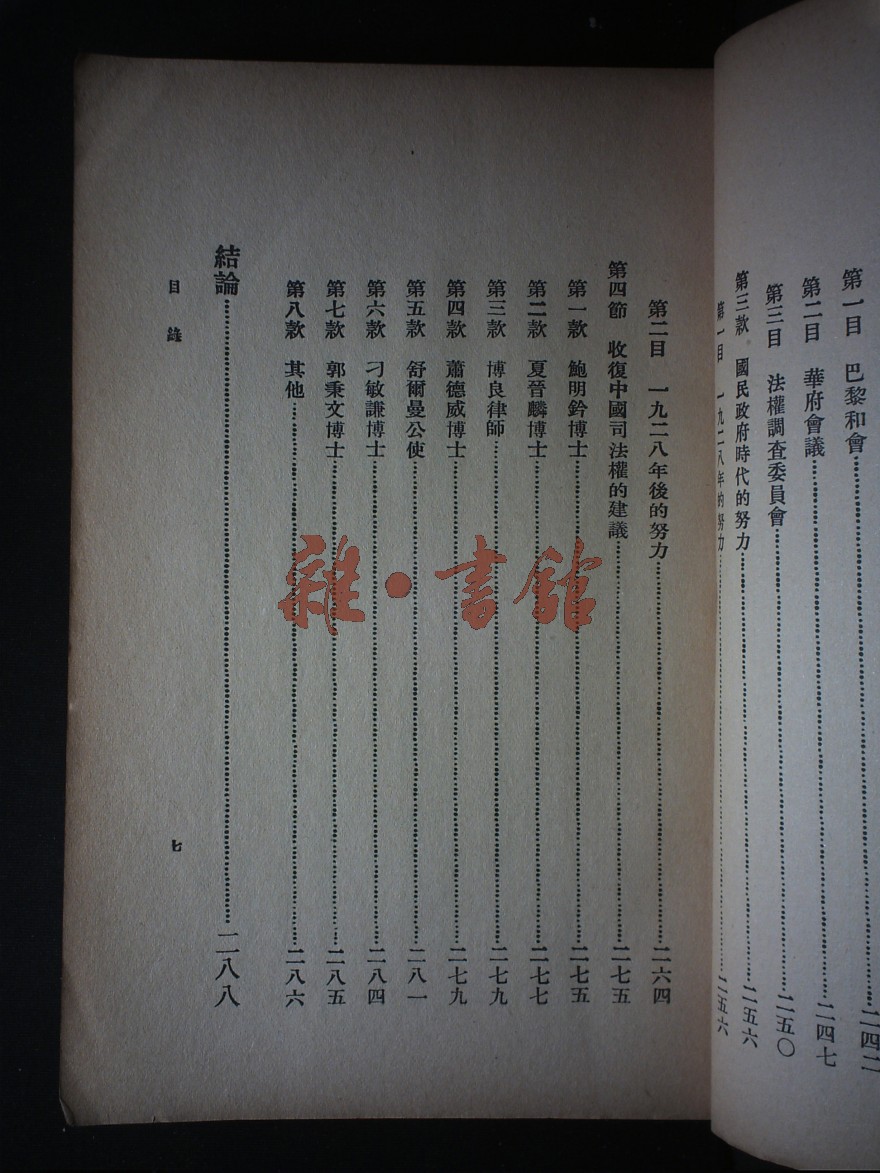 第一目 巴黎和會 二四二
第二目 華府會議 二四七
第三目 法權調査委員會 二五〇
第三款 國民政府時代的努力 二五六
第一目 一九二八年的努力 二五六
第二目 一九二八年後的努力 二六四
第四節 收復中國司法權的建議 二七五
第一款 鮑明鈐博士 二七五
第二款 夏晉麟博士 二七七
第三款 博良律師 二七九
第四款 蕭德威博士 二七九
第五款 舒爾曼公使 二八一
第六款 刁敏謙博士 二八四
第七款 郭秉文博士 二八五
第八款 其他 二八六
結論 二八八
目錄 七
雜·書館